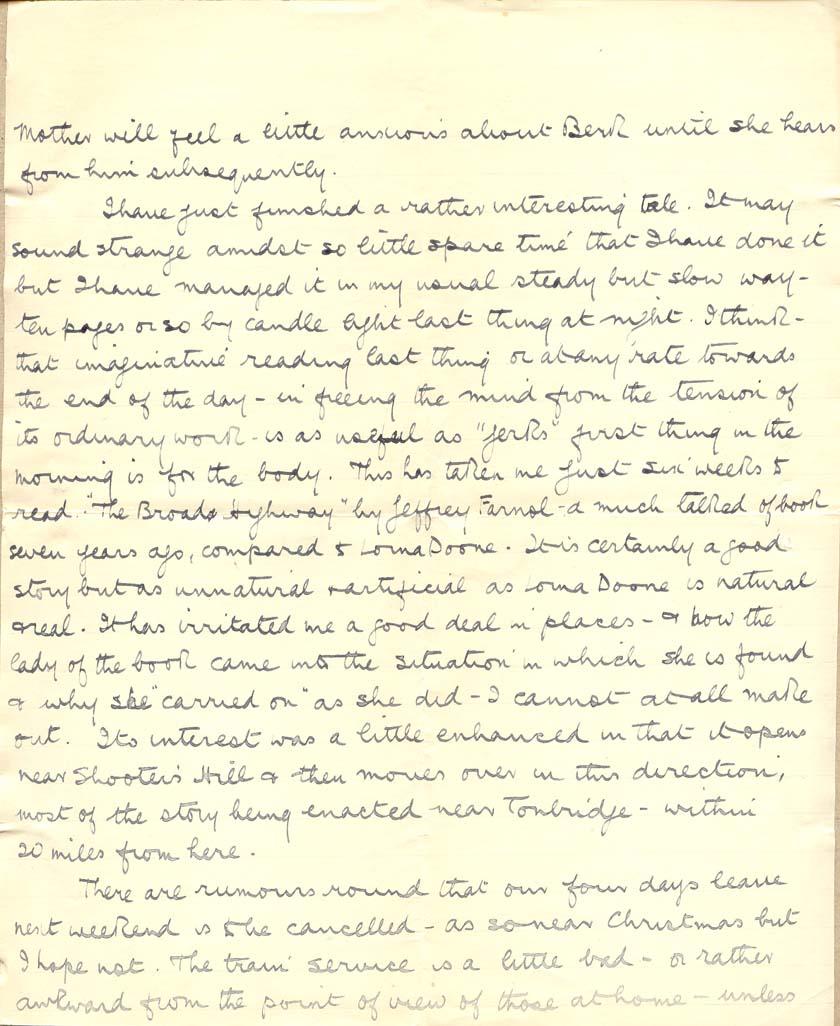 Mother will feel a little anxious about Berk until she hears
from him subsequently.
I have just finished a rather interesting tale. It may
sound strange amidst so little spare time that I have done it
but I have managed it in my usual steady but slow way -
ten pages or so by candle light last thing at night. I think -
that imaginative reading last thing or at any rate towards
the end of the day - in freeing the mind from the tension of
its ordinary work - is as useful as "jerks" first thing in the
morning is for the body. This has taken me just six weeks to
read. "The Broad Highway" by Jeffrey Farnol - a much talked of book
seven years ago, compared to Lorna Doone. It is certainly a good
story but as unnatural & artificial as Lorna Doone is natural
& real. It has irritated me a good deal in places - & how the
lady of the book came into the situation in which she is found
& why she "carried on" as she did - I cannot at all make
out. Its interest was a little enhanced in that it opens
near Shooter's Hill & then moves over in this direction,
most of the story being enacted near Tonbridge - within
20 miles from here.
There are rumours round that our four days leave
next weekend is to be cancelled - as so near Christmas but
I hope not. The train service is a little bad - or rather
awkward from the point of view of those at home - unless